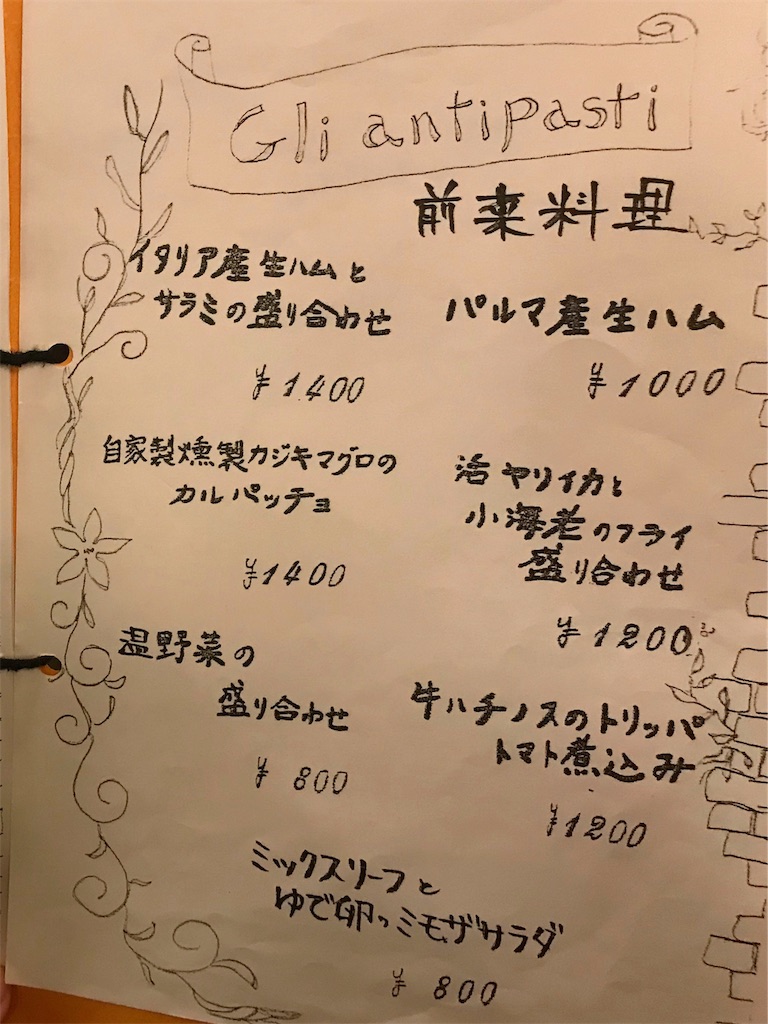 Gli antipasti
前来料理
イタリア産生ハムと
サラミの盛り合わせ
¥1400
パルマ産生ハム
¥1000
自家製燻製カジキマグロの
カルパッチョ
¥1400
活ヤリイカと
小海老のフライ
盛り合わせ
¥1200
温野菜の
盛り合わせ
¥800
牛ハチノスのトリッパ
トマト煮込み
¥1200
ミックスリーフと
ゆで卵のミモザサラダ
¥800